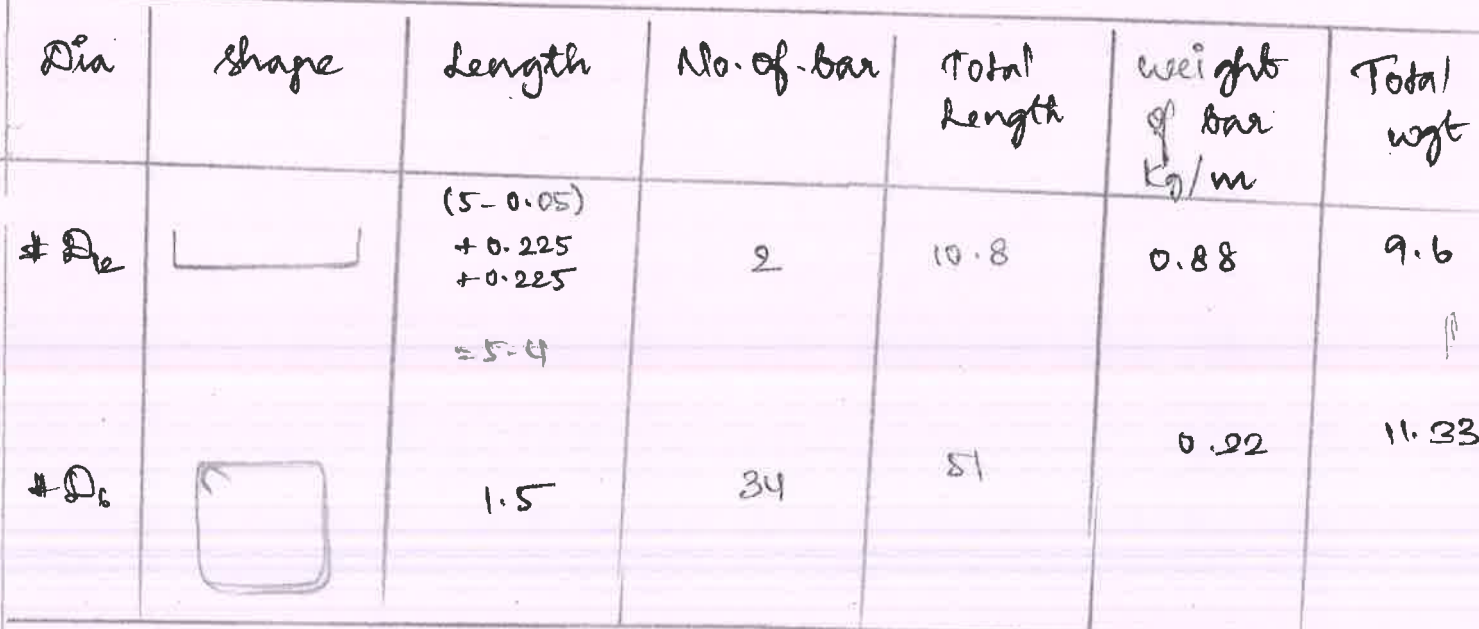 Dia shape Length No. of. bar Total Length weight of bar Kg/m Total wgt
# D12 (5-0.05) + 0.225 + 0.225 = 5.4 2 10.8 0.88 9.6
# D6 1.5 34 51 0.22 11.33